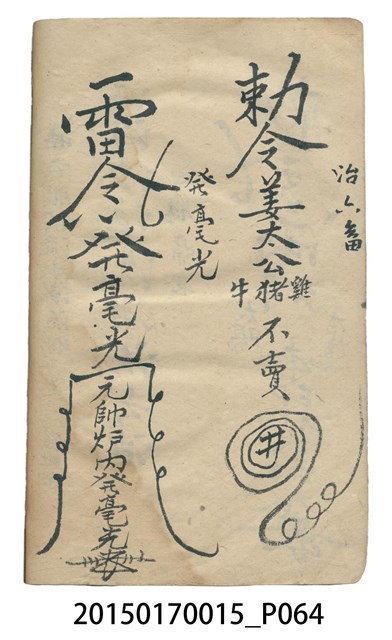 治六畜
勅令姜太公
雞
猪
牛
不賣
井
發毫光
雷令發毫光
元帥炉內發毫光
20150170015_P064